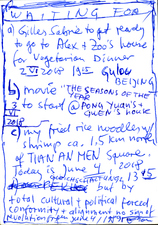 WAITING FOR
a) Gilles Sabrié to get ready
to go to Alex + Zoë's house
for Vegetarian Dinner
2 VI 2018 19 15 Gulou
BEIJING
b) movie "THE SEASONS OF THE
YEAR"
3 to start @ PONG Yuan's +
VI QUEN'S HOUSE
2018
c) my fried rice noodles/
shrimp ca. 1,5 km north
of TIAN AN MEN Square.
Today is June 4 2018
13 45
PEKING but by
total cultural + political forced
conformity + alignment no sign of
revolution from June 4 1989